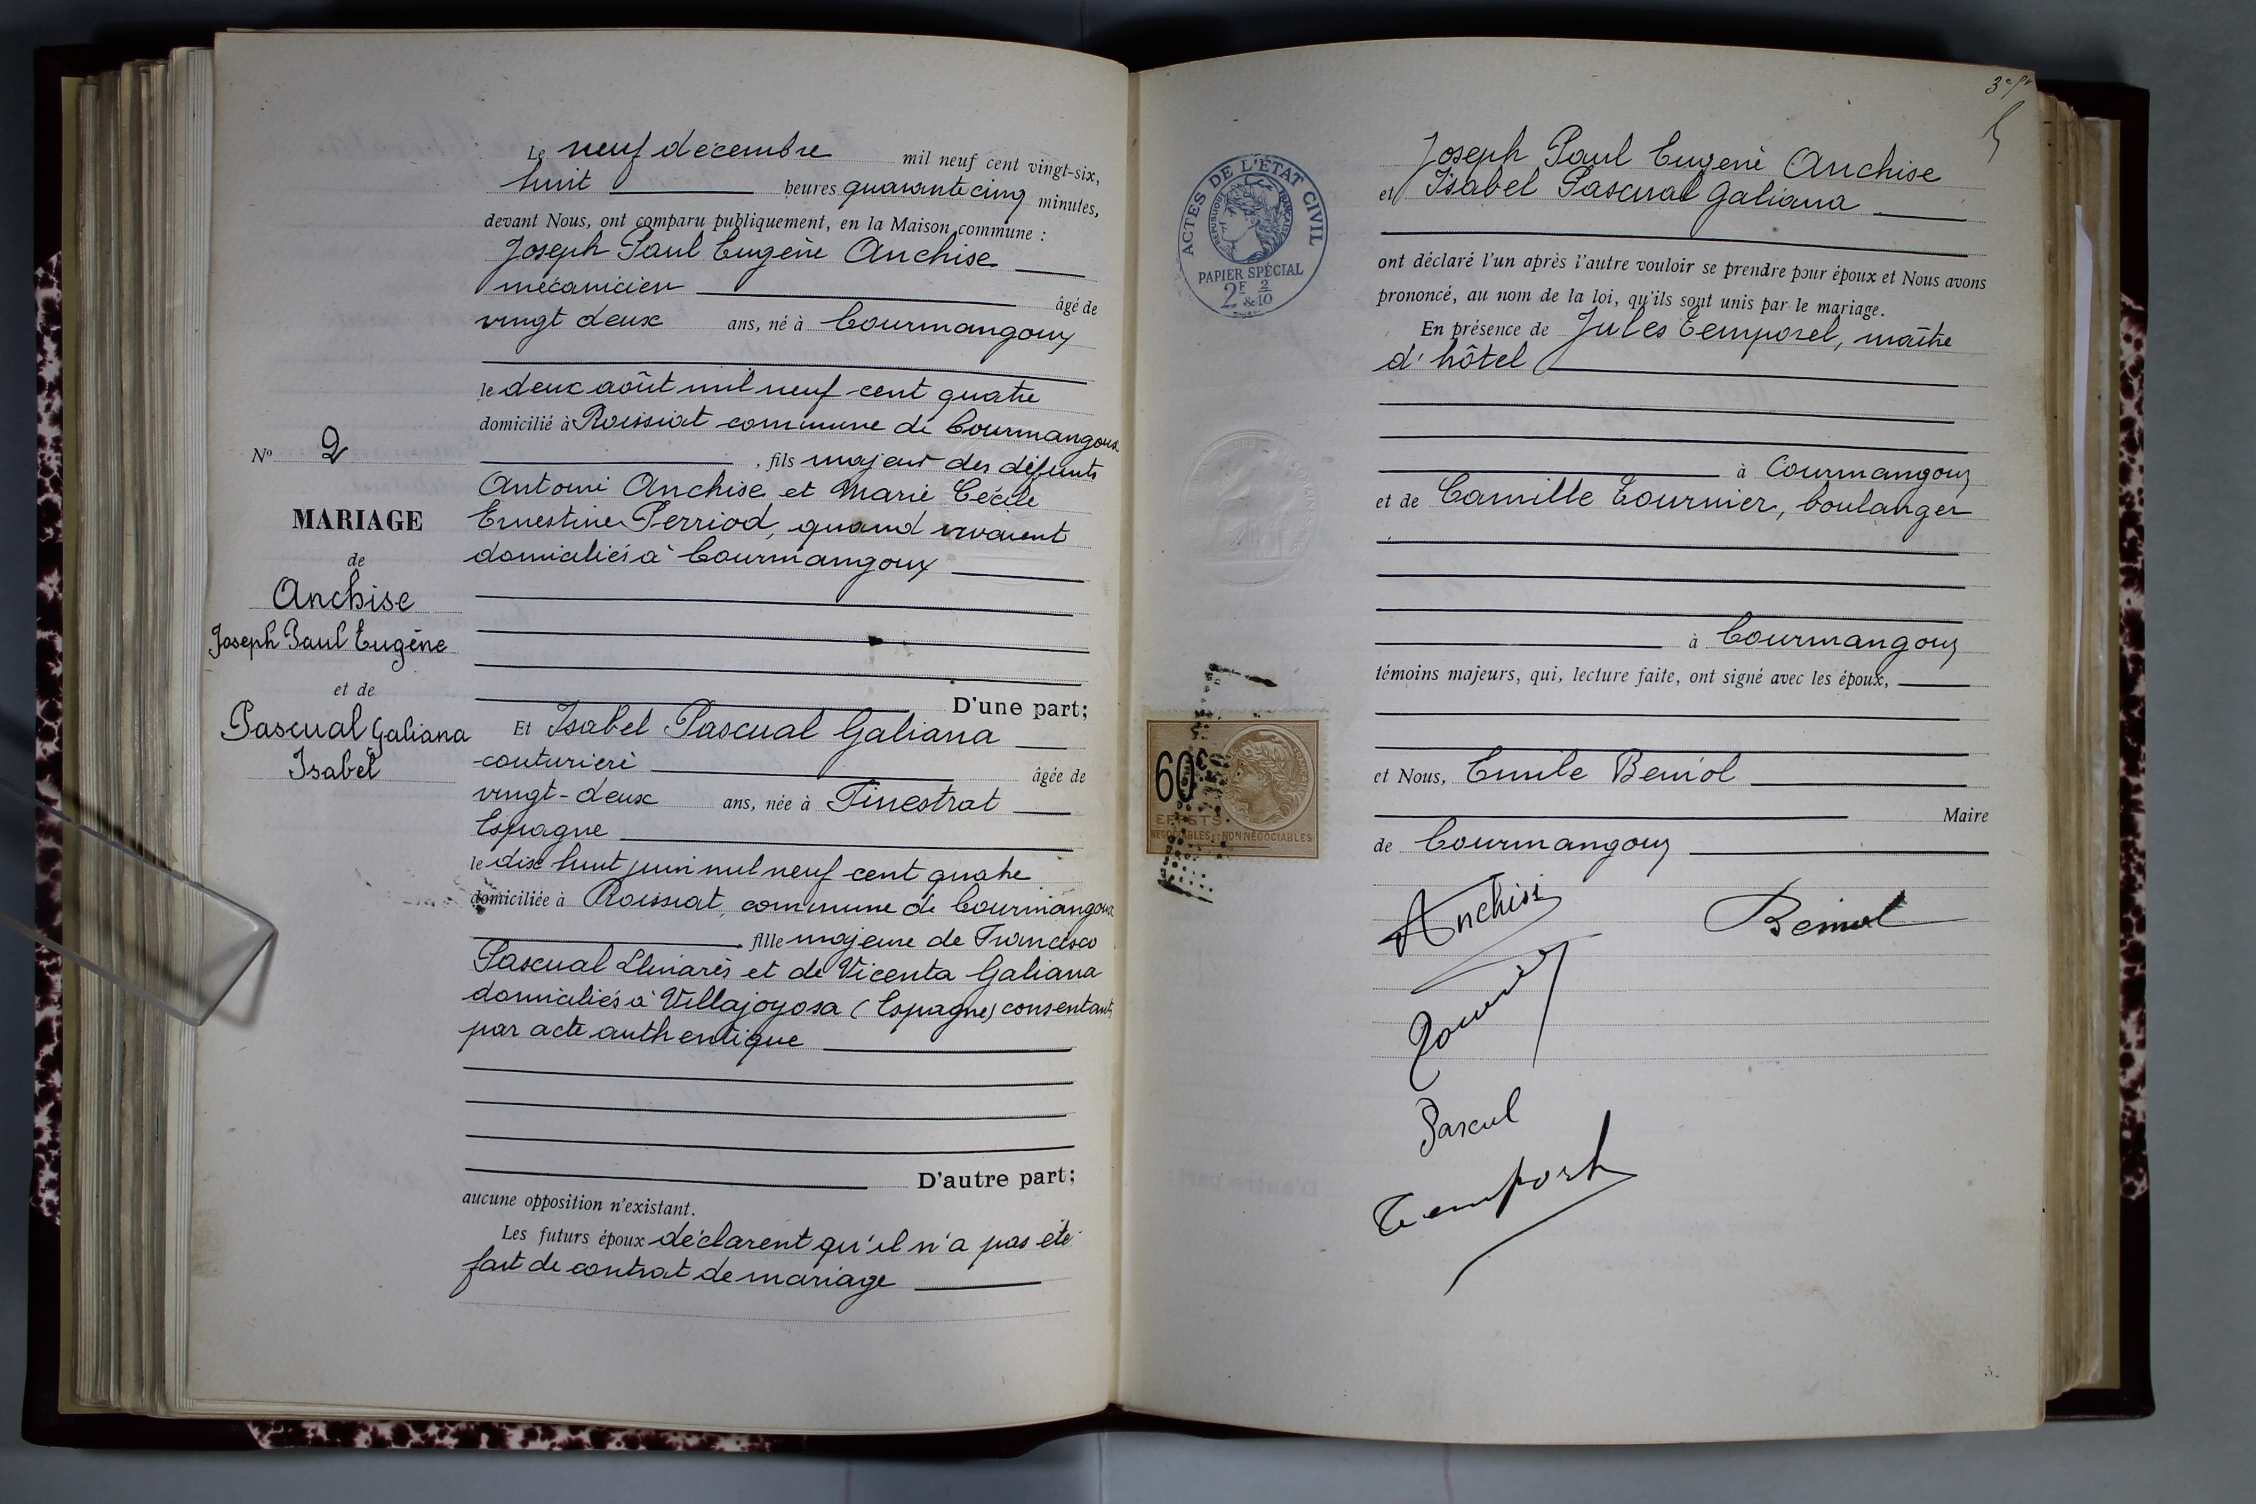 Le neuf décembre mil neuf cent vingt-six,
huit heures quarante cinq minutes,
devant Nous, ont comparu publiquement, en la Maison commune :
Joseph Paul Eugène Anchise
mécanicien âgé de
vingt deux ans, né à Courmangoux
le deux août mil neuf cent quatre
domicilié à Roissiat commune de Courmangoux
, fils majeur des défunts
Antoine Anchise et Marie Cécile
Ernestine Perriod, quand vivaient
domiciliés à Courmangoux
D'une part;
Et Isabel Pascual Galiana
couturière âgée de
vingt-deux ans, née à Finestrat
Espagne
le dix huit juin mil neuf cent quatre
domiciliée à Roissiat, commune de Courmangoux
, fille majeure de Francisco
Pascual Llinarès et de Vicenta Galiana
domiciliés à Villajoyosa (Espagne) consentants
par acte authentique
D'autre part;
aucune opposition n'existant.
Les futurs époux déclarent qu'il n'a pas été
fait de contrat de mariage
N° 2
MARIAGE
de
Anchise
Joseph Paul Eugène
et de
Pascual Galiana
Isabel
ACTES DE L'ÉTAT CIVIL
RÉPUBLIQUE FRANÇAISE
PAPIER SPÉCIAL
2F & 2/10
60c
EFFETS
NÉGOCIABLES : NON NÉGOCIABLES
Joseph Paul Eugène Anchise
et Isabel Pascual Galiana
ont déclaré l'un après l'autre vouloir se prendre pour époux et Nous avons
prononcé, au nom de la loi, qu'ils sont unis par le mariage.
En présence de Jules Temporel, maître
d'hôtel
à Courmangoux
et de Camille Tournier, boulanger
à Courmangoux
témoins majeurs, qui, lecture faite, ont signé avec les époux,
et Nous, Emile Beniol
Maire
de Courmangoux
Anchise
Beniol
Tournier
Pascul